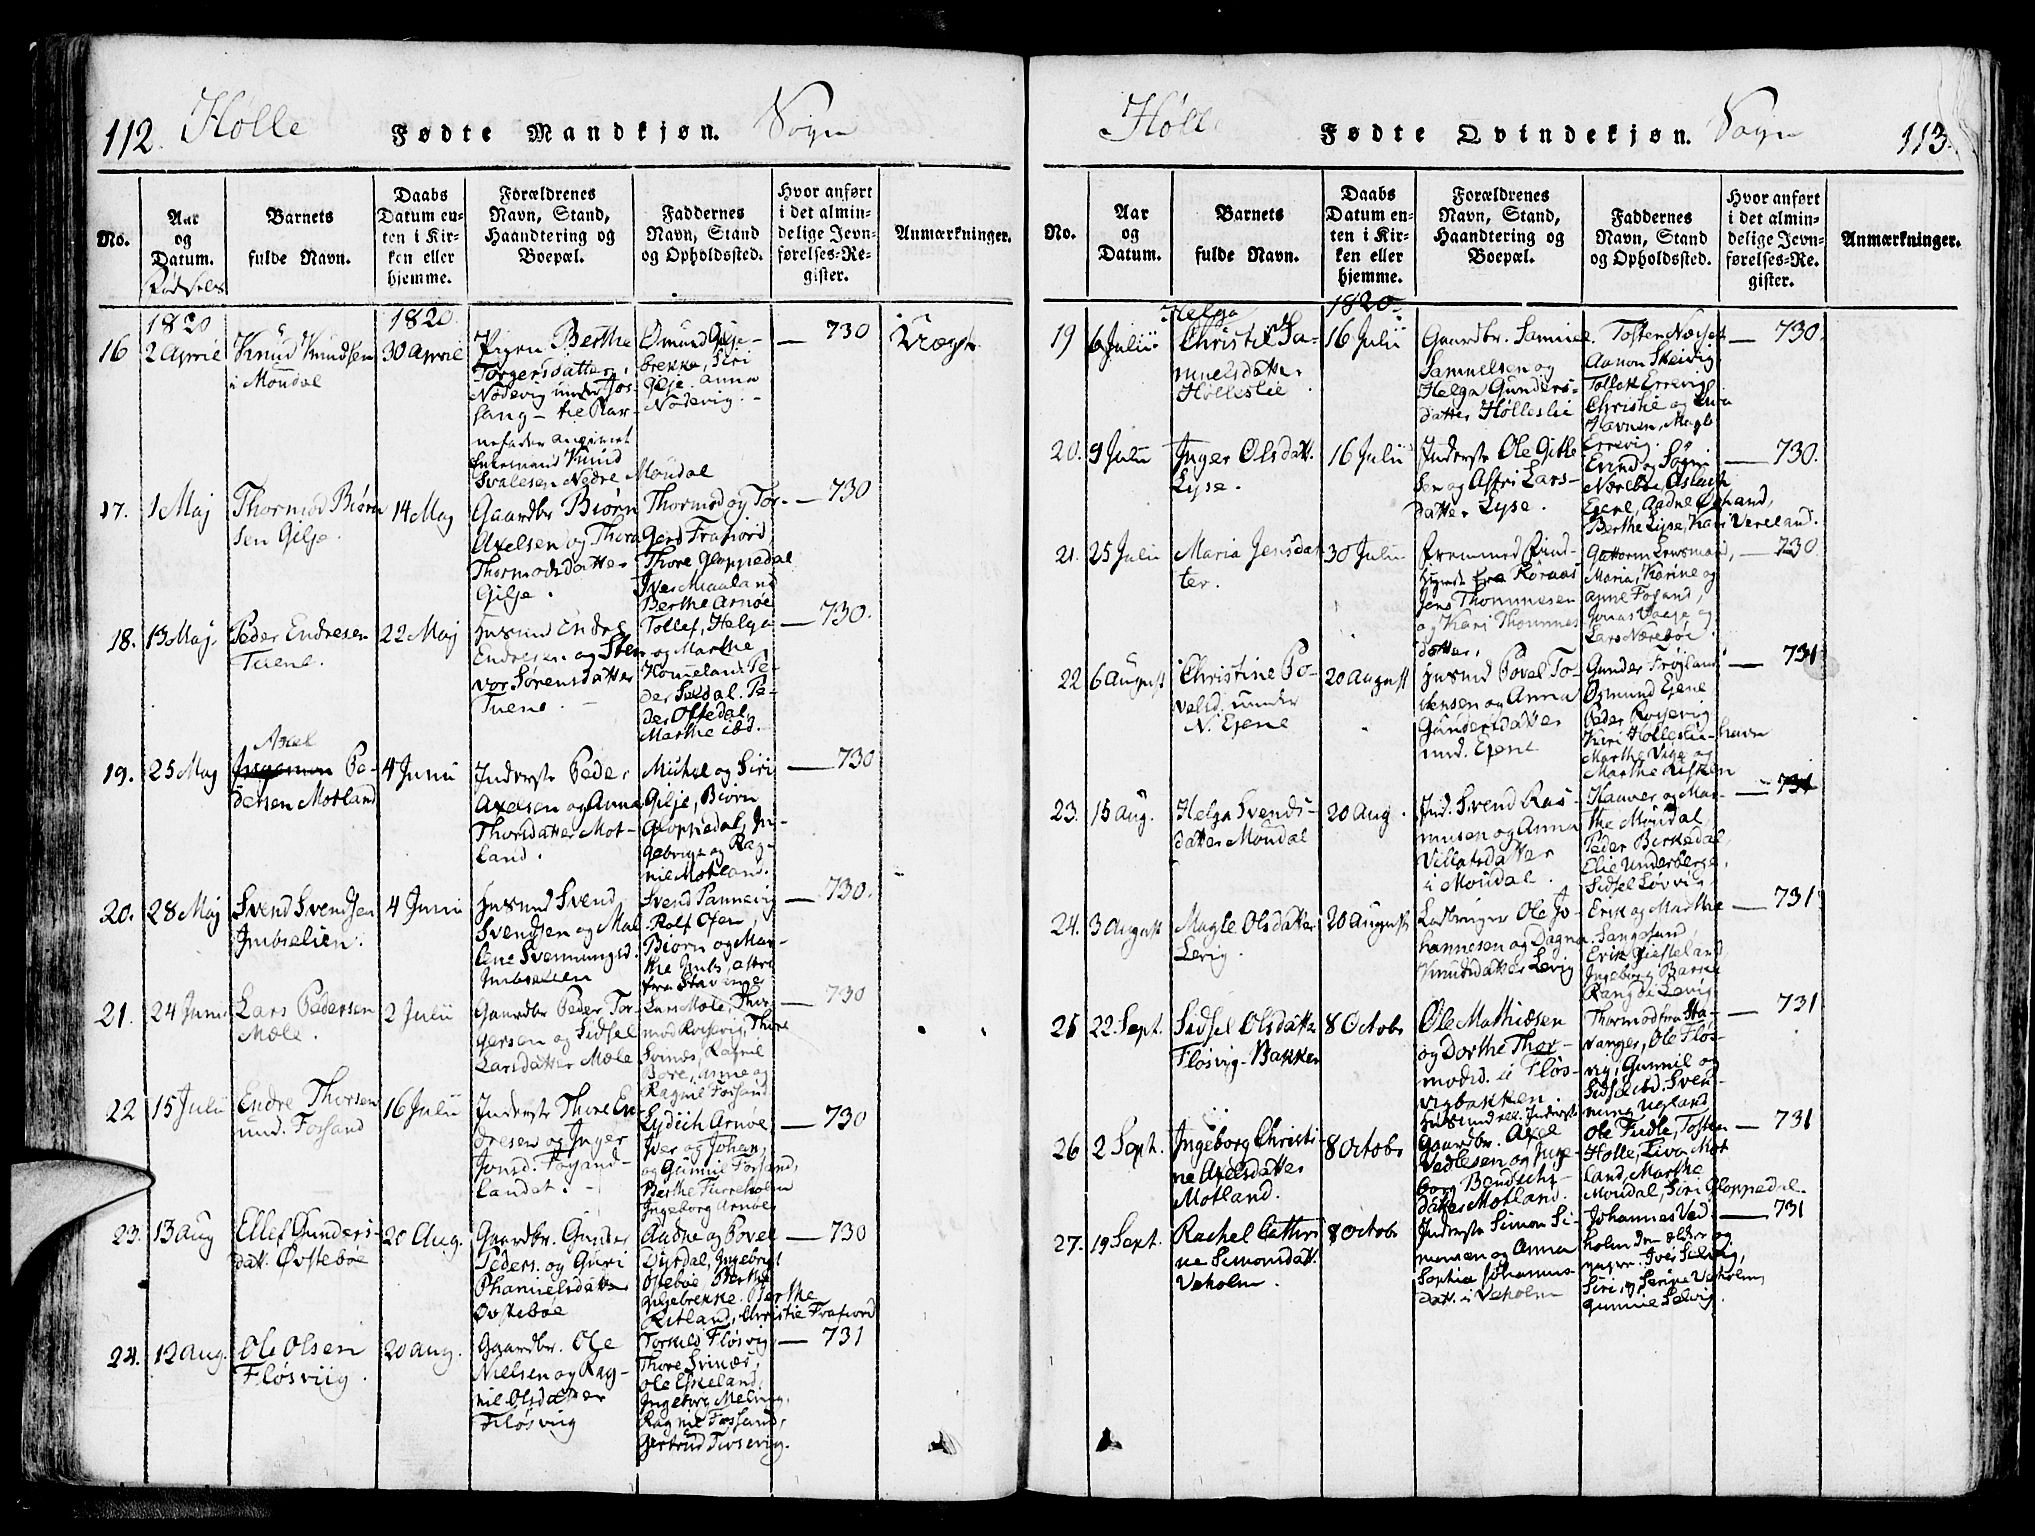 112. Hølle Fødte Mandkjøn. Sogn
No.
Aar
og
Datum.
Fødsels
Barnets
fulde Navn.
Daabs
Datum en-
ten i Kir-
ken eller
hjemme.
Forældrenes
Navn, Stand,
Haandtering og
Boepæl.
Faddernes
Navn, Stand
og Opholdssted.
Hvor anført
i det almin-
delige Jevn-
førelses-Re-
gister.
Anmærkninger.
1820
1820
16
2 April
Knud Knudsen
i Moudal
30 April
Pigen Berthe
Torgersdatter,
Nødevig under Fos-
sang - til Bar-
nefader angivet
Knud
Svalesen Nedre Moudal
Osmund Gilje-
brekke, Siri
Gilje. Anna
Nødevig. -
730
17.
1 Maj
Thormod Biørn
sen Gilje.
14 Maj
Gaardbr Biørn
Axelsen og Thora
Thormodsdatter
Gilje.
Thormod og Tor-
Gerd Frafiord,
Thore Gloppedal
Iver Maaland
Berthe Arnøe
730
18.
13 Maj.
Peder Endresen
Tuene.
22 Maj
Husmd Endre
Endresen og Sten
vor Sørensdatter
Tuene. -
Tollef, Helge
og Marthe
Kommeland. Pe-
der Seldal. Pe-
der Oftedal,
Marthe ibd.
730.
19.
25 Maj
Axel
Ingeman Pe-
dersen Motland
4 Junii
Inderste Peder
Axelsen og Anna
Thorsdatter Mot-
land.
Michel og Siri
Gilje, Biørn
Gloppedal, In-
gebrigt og Rag-
nil Motland.
730
20.
28 Maj
Svend Svendsen
Imbselien.
4 Junii
Husmd Svend
Svendsen og Mal
ene Svennungsd.
Imbselien
Svend Pannevig
Rolf Oxen,
Biørn og Mar-
the Imbs, Astri
fra Stavanger
730.
21.
24 Juni
Lars Pedersen
Mæle.
2 Julii
Gaardbr Peder Tor-
gersen og Sidsel
Larsdatter Mæle
Lars Mæle, Thor
mod Rossevig, Thore
Svines, Ragnil
Bore, Anne og
Ragnil Fossand
730
22
15 Julii
Endre Thorsen
und. Forsand
16 Julii
Inderste Thore En-
dresen og Inger
Jonsd. Forsand-
landet. -
Lydich Arnøe,
Iver og Johan,
og Gunnil Forsand,
Berthe Furreholm
Ingeborg Arnøe
730
23.
13 Aug
Ellef Gunders-
datt. Øvstebøe
20 Aug.
Gaardbr. Gunder
Peders. og Guri
Phanuelsdatter
Øvstebøe
Aadne og Povel
Dyrdal, Ingebrigt
Østebøe Berthe
Giljebrekke. Berthe
Ritland, Christie Frafiord
730
24.
12 Aug.
Ole Olsen
Fløsviig.
20 Aug.
Gaardbr. Ole
Nielsen og Rag-
nil Olsdatter
Fløsviig
Torkild Fløsvig,
Thore Svinæs,
Ole Eskeland,
Ingeborg Meling,
Ragnil Fossand,
Gertrud Tiosevig.
731
Hølle Fødte Qvindekjøn. Sogn 113.
No.
Aar
og
Datum.
Barnets
fulde Navn.
Daabs
Datum en-
ten i Kir-
ken eller
hjemme.
Forældrenes
Navn, Stand,
Haandtering og
Boepæl.
Faddernes
Navn, Stand
og Opholdssted.
Hvor anført
i det almin-
delige Jevn-
førelses-Re-
gister.
Anmærkninger.
1820
19
6 Julii
Helga
Christie Sa-
muelsdatter
Hølleslie
16 Julii
Gaardbr. Samuel
Samuelsen og
Helga Gunders-
datter Hølleslie
Tosten
Aanon Skeivig
Tollef Errevig
Christie og
Havnen, Magle
Errevig.
730.
20.
9 Julii
Inger Olsdatt.
Lyse.
16 Julii
Inderste Ole Gitle
sen og Astri Lars-
datter Lyse.
Erind og Søgni
Nærebøe Aslach
Eiene, Aadne
Berthe Lyse, Kari Vereland.
730.
21.
25 Julii
Maria Jensdat-
ter.
30 Julii
Fremmed
fra Røraas
Jens Thommesen
og Kari Thommes
datter,
Guttorm Lensmand,
Maria, Karine og
Anne Fossand,
Jonas Vaage og
Lars Nærebøe.
730
22
6 August
Christine Po-
velsd. under
N. Eiene
20 August
Husmd Povel To-
rkensen og Anna
Gundersdatter
und. Eiene
Gunder Frøiland
Osmund Eiene
Peder Rossevig
Kari Hølleslie-havn
Marthe Vige og
Marthe Risken
731
23.
15 Aug.
Helga Svends-
datter Moudal
20 Aug.
Ind. Svend Ras-
musen og Anna
Villatsdatter
i Moudal.
Haaver og Mar-
the Moudal,
Peder Birkedal,
Elie Underberge,
Sidsel Løvvig,
731
24.
3 August
Magle Olsdatter
Levig.
20 August
Ladbruger Ole Jo-
hannesen og Dagna
Knudsdatter Levig
Erik og Marthe
Songesand,
Erik Fiskeland
Ingeborg Barke
Rangdi Levig
731
25
22 Sept.
Sidsel Olsdatter
Fløsvig-Bakken
8 Octobr
Ole Mathiesen
og Dorthe Thor-
modsd. i Fløs-
vigbakken.
Husmænd rel. Inderste
Thormod fra Sta-
vanger, Ole Fløs-
vig, Gunnil og
Sidsel ibd. Sven-
nung Ugland
731
26
2 Sept.
Ingeborg Christi-
ne Axelsdatter
Motland.
8 Octobr
Gaardbr. Axel
Vedlesen og Inge-
borg Bendichs-
datter Motland.
Ole Fidle, Tosten
Hølle, Liva Mot
land, Marthe
Moudal, Siri Gloppedal
731
27.
19 Sept.
Rachel Cathri
ne Simonsdatt.
Veholm.
8 Octobr
Inderste Simon Si-
monsen og Anna
Sophia Johannes-
datt. i Veholm
Johannes Ved-
holm den ældre og
yngre. Iver Selvig,
Siri og Serine Veholm,
Gunnil Selvig.
731